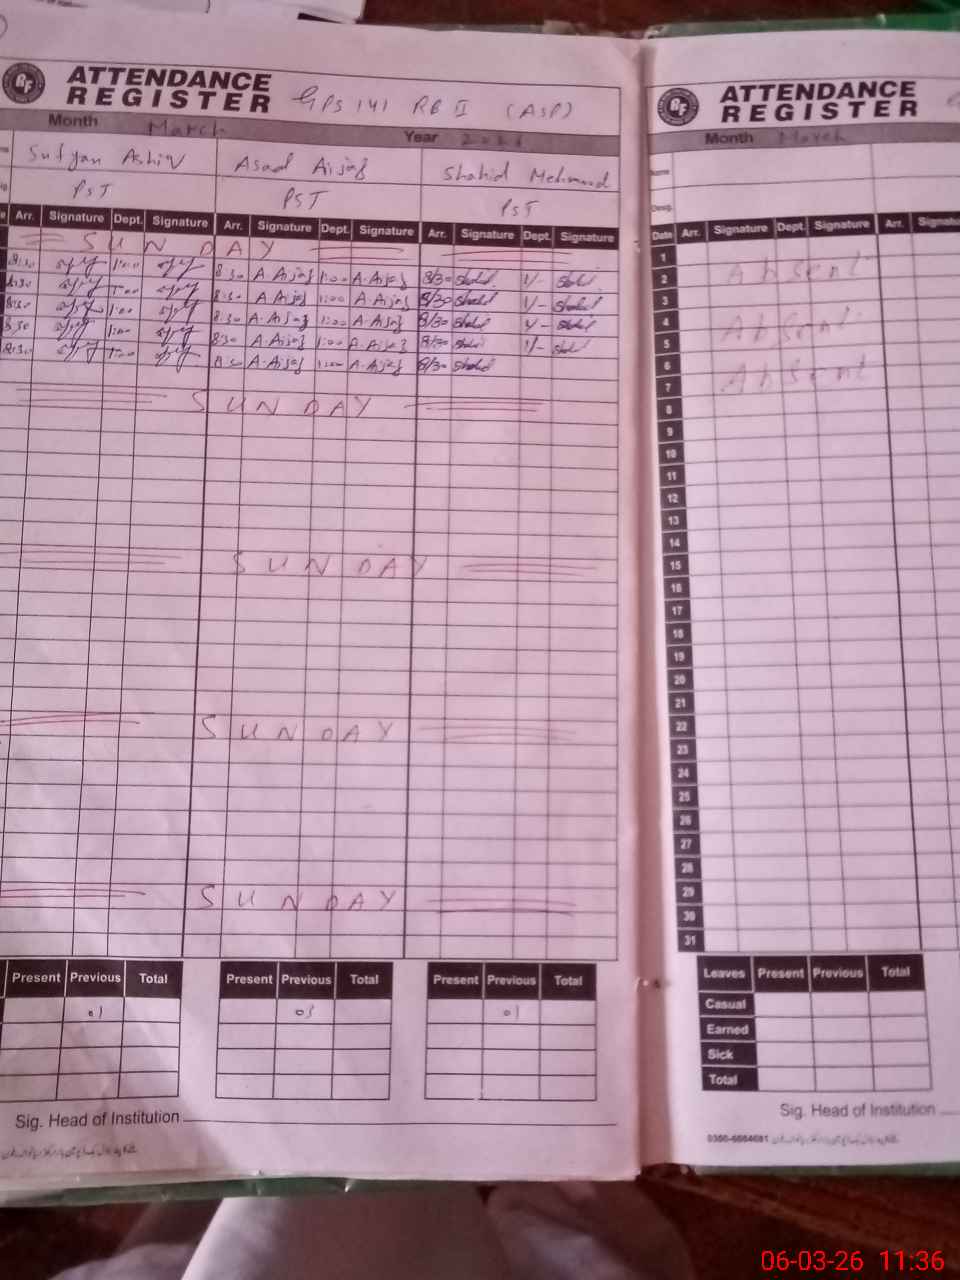 ATTENDANCE REGISTER GPS 141 RB II (ASP)
Month March Year
Sufyan Asad Aijaz Shahid Mehmood
PST PST PST
Arr. Signature Dept. Signature Arr. Signature Dept. Signature Arr. Signature Dept. Signature
SUNDAY
8:30 1:00 8:30 A.Aijaz 1:00 A.Aijaz 8/30 Shahid 1/- Shahid
8:30 1:00 8:30 A.Aijaz 1:00 A.Aijaz 8/30 Shahid 1/- Shahid
8:30 1:00 8:30 A.Aijaz 1:00 A.Aijaz 8/30 Shahid 1/- Shahid
8:30 1:00 8:30 A.Aijaz 1:00 A.Aijaz 8/30 Shahid 1/- Shahid
8:30 1:00 8:30 A.Aijaz 1:00 A.Aijaz 8/30 Shahid
SUNDAY
SUNDAY
SUNDAY
SUNDAY
Present Previous Total Present Previous Total Present Previous Total
01 03 01
Sig. Head of Institution
RF ATTENDANCE REGISTER
Month March
Name
Desig.
Date Arr. Signature Dept. Signature Arr.
1
2 Absent
3
4
5 Absent
6
7 Absent
8
9
10
11
12
13
14
15
16
17
18
19
20
21
22
23
24
25
26
27
28
29
30
31
Leaves Present Previous Total
Casual
Earned
Sick
Total
Sig. Head of Institution
06-03-26 11:36